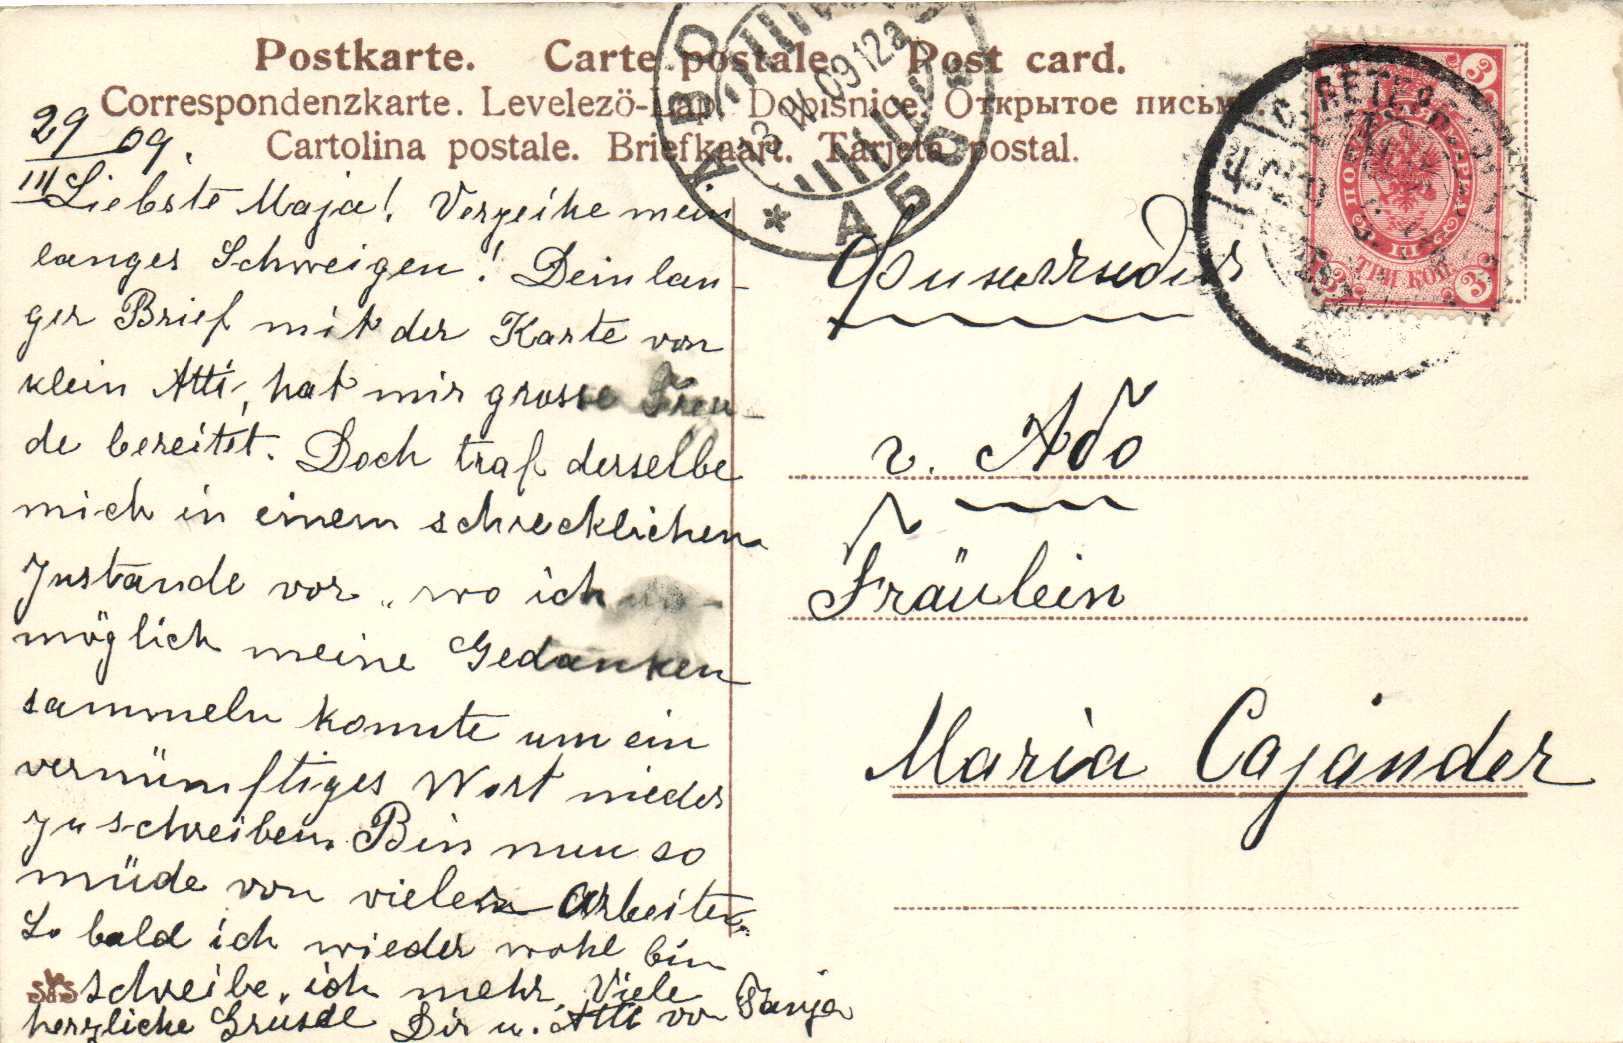 Postkarte. Carte postale. Post card.
Correspondenzkarte. Levelező-Lap. Dopisnice. Открытое письмо
Cartolina postale. Briefkaart. Tarjeta postal.
29 09.
III
Liebste Maja! Verzeihe mein
langes Schweigen! Dein lan-
ger Brief mit der Karte von
klein Atti, hat mir grosse Freu-
de bereitet. Doch traf derselbe
mich in einem schrecklichen
Zustande vor, wo ich un-
möglich meine Gedanken
sammeln konnte um ein
vernünftiges Wort nieder
zu schreiben. Bin nun so
müde von vielem Arbeiten.
So bald ich wieder wohl bin
schreibe ich mehr. Viele
herzliche Grüsse Dir u. Atti von Tanja
S&S
ABO
3 IV 09 12a
АБО
3 3
ПОЧТОВАЯ МАРКА
ТРИ КОП
3 3
Финляндия
г. Або
Fräulein
Maria Cajander